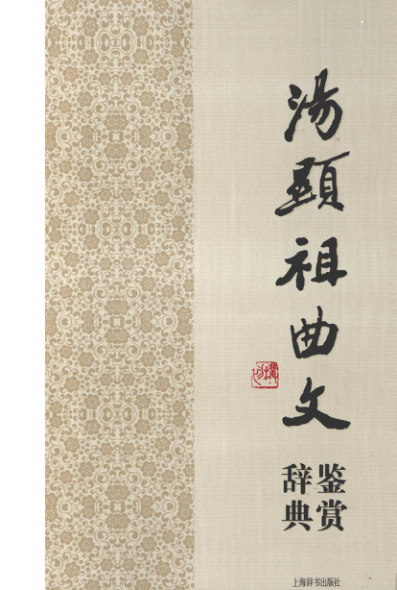 湯顯祖曲文
鉴赏
辞典
上海辞书出版社